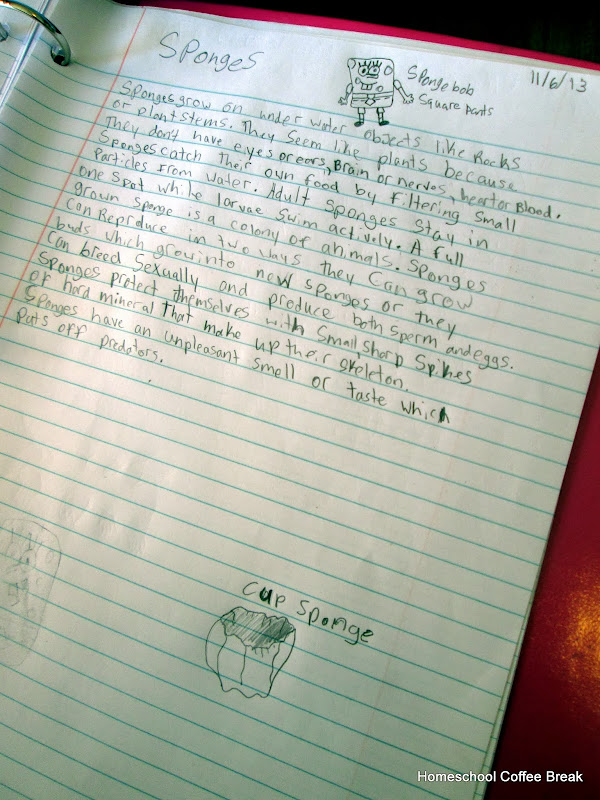 Sponges
Spongebob
Squarepants
11/6/13
Sponges grow on under water objects like Rocks
or plant stems. They seem like plants because
They don't have eyes or ears, Brain or nerves, heart or Blood.
Sponges catch their own food by filtering small
Particles from water. Adult sponges stay in
one spot while larvae swim actively. A full
grown sponge is a colony of animals. Sponges
can Reprduce in two ways they can grow
buds which grow into new sponges or they
can breed sexually and produce both sperm and eggs.
Sponges protect themselves with small, sharp spikes
of hard mineral that make up their skeleton.
Sponges have an unpleasant smell or taste which
puts off predators.
cup sponge
Homeschool Coffee Break